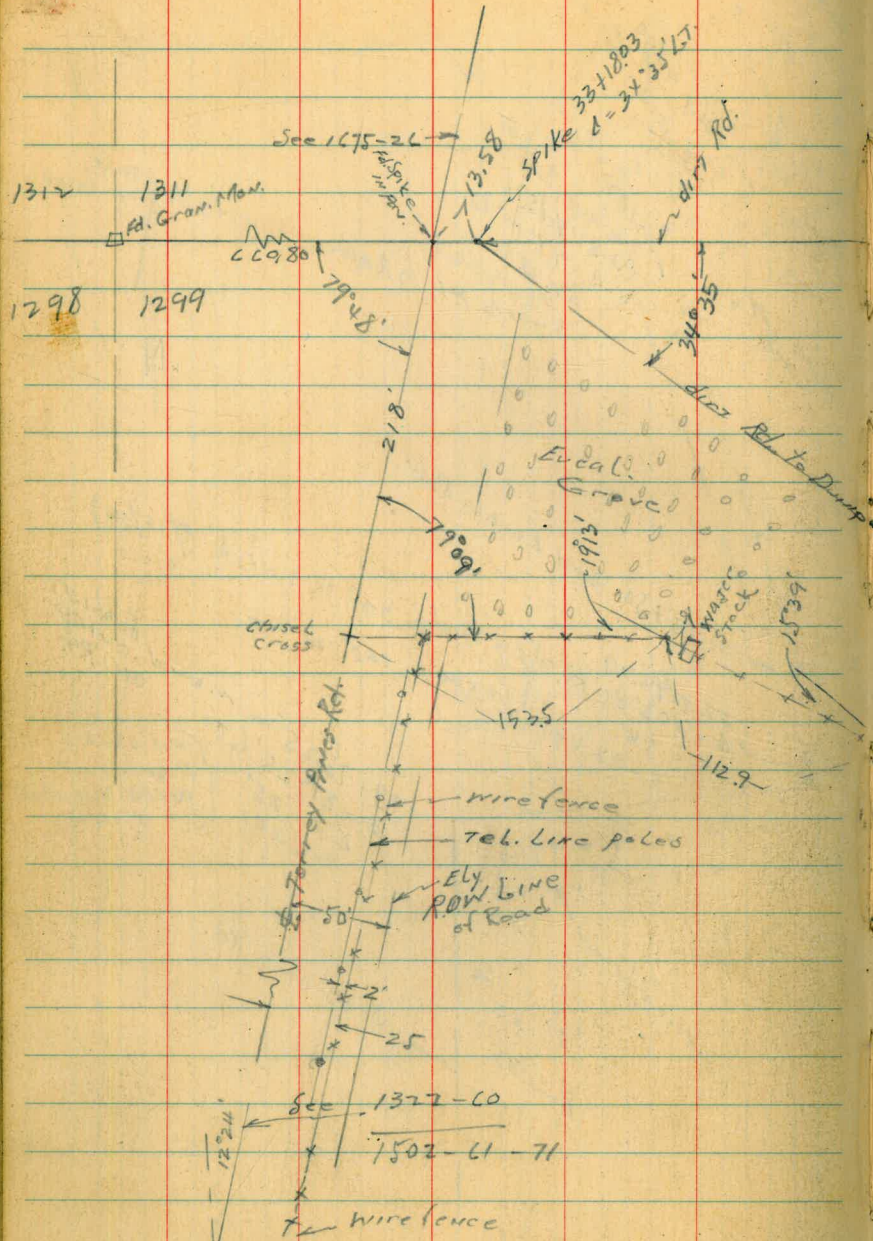 33+18.03
Δ = 34° 35' LT.
Spike
13.58
See 1675-26
Fd. Spike
in Pav.
dirt Rd.
1312
1311
Fd. Gran. Mon.
660.80
1298
1299
79° 48'
34° 35'
218'
dirt Rd. to Dump
Eucal.
Grove
79° 09'
19° 13'
Water
Stock
15° 39'
Chisel
Cross
153.5
112.9
Torrey Pines Rd.
wire fence
Tel. Line poles
Ely
R.O.W. Line
of Road
50'
2'
25
See 1322-60
1502-61-71
12° 24'
wire fence